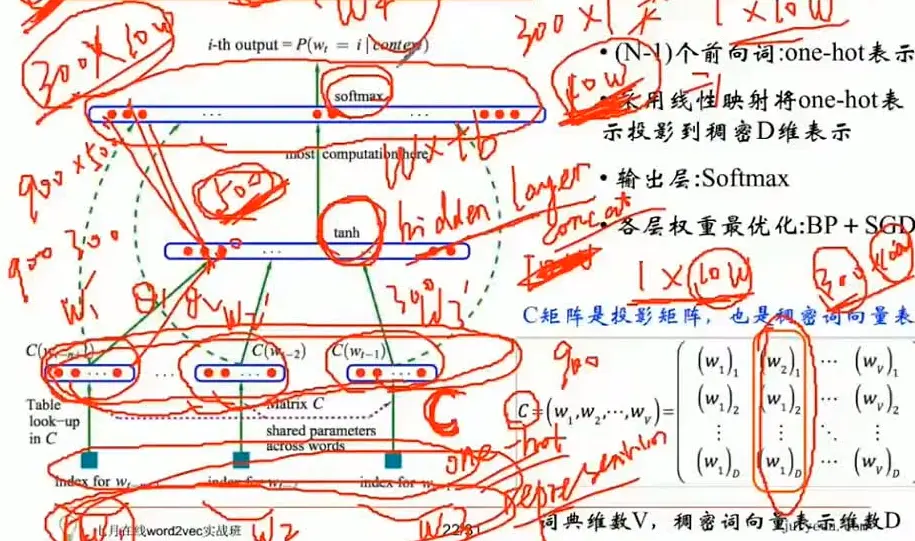 300×1 × 1×10W
300×10W
i-th output = P(w_t = i | context)
softmax
most computation here
10W
(N-1)个前向词:one-hot表示
采用线性映射将one-hot表
示投影到稠密D维表示
输出层:Softmax
各层权重最优化:BP+SGD
900×500
500
tanh
hidden layer
concat
900 300
W1'
W2'
300
W3'
1×10W
300
C矩阵是投影矩阵，也是稠密词向量表
C(w_{t-2})
C(w_{t-1})
900
Table
look-up
in C
Matrix C
C
shared parameters
across words
C=(w_1,w_2,⋯,w_V)=
(w_1)_1 (w_2)_1 ⋯ (w_V)_1
(w_1)_2 (w_1)_2 ⋯ (w_V)_2
⋮ ⋮ ⋱ ⋮
(w_1)_D (w_1)_D ⋯ (w_V)_D
one hot
representation
index for
index for
index for
W1 W2 W3
七月在线word2vec实战班
22/31
词典维数V，稠密词向量表示维数D